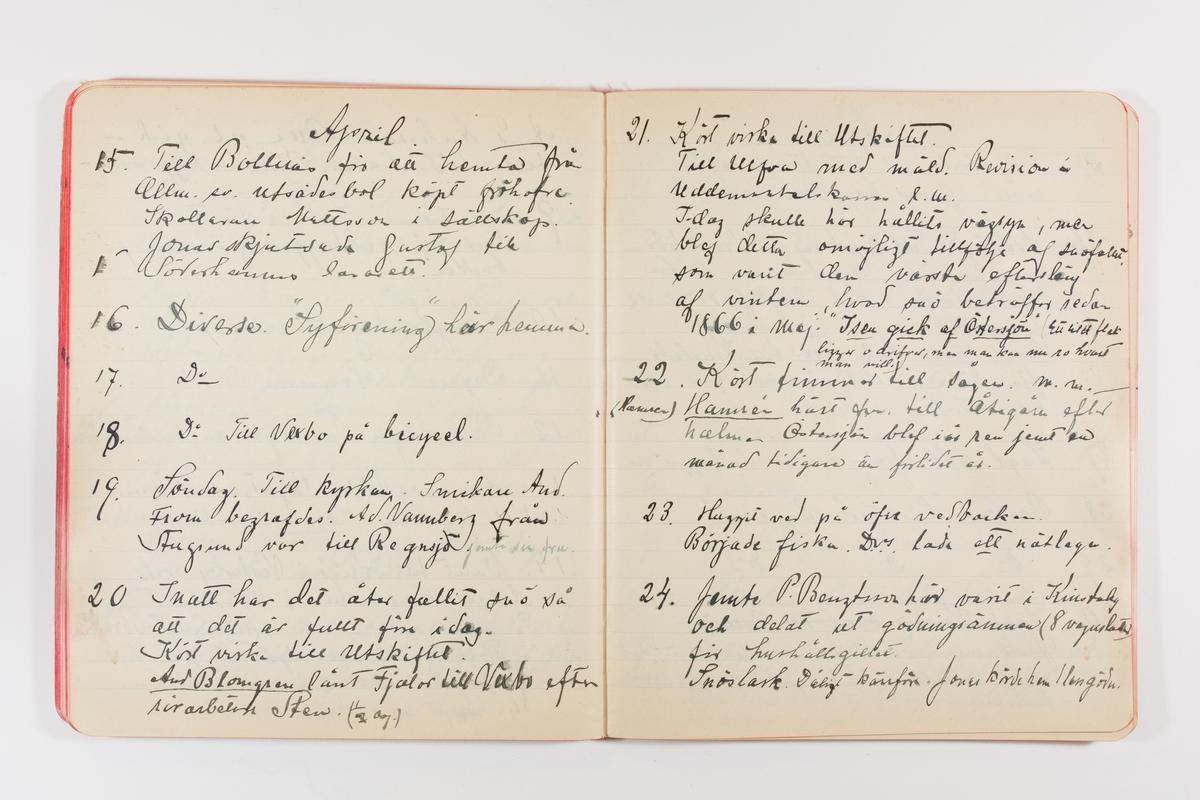 April
15. Till Bollnäs för att hemta från
Allm. sv. utsädesbol köpt fröhafre.
Skolläraren Mattsson i sällskap.
Jonas skjutsade Gustaf till
Söderhamns lasarett.
16. Diverse. "Syförening" här hemma.
17. Do
18. Do Till Vexbo på bicycel.
19. Söndag. Till kyrkan. Snickare And.
From begrafdes. Ad. Vannberg från
Stugsund var till Regnsjö jemte sin fru.
20 Inatt har det åter fallit snö så
att det är fullt före idag.
Kört virke till Utskiftet.
And Blomgren lånt Fjalar till Vexbo efter
Sten. (1/2 dag.)
21. Kört virke till Utskiftet.
Till Ulfva med mäld. Revision i
Uddemantalskassan f.m.
Idag skulle här hållits vägsyn, men
blef detta omöjligt tillfölje af snöfallet,
som varit den värsta eftersläng
af vintern, hvad snö beträffar sedan
1866 i Maj. "Isen gick af Östersjön" (Ett litet flak
ligger o drifver, men man kan nu ro hvart
man vill.)
22. Kört timmer till sågen. m.m.
(Hamrén) Hamrén häst fm. till Åtigärn efter
halm. Östersjön blef isren jemt en
månad tidigare än förlidet år.
23. Huggit ved på öfre vedbacken.
Började fiska. Dvs. lade ett nätlag.
24. Jemte P. Bengtsson här varit i Kinstaby
och delat ut gödningsämnen (8 vagnslaster)
för hushållsgillet.
Snöslask. Dåligt kärrföre. Jonas körde hem 1 lass gödn.